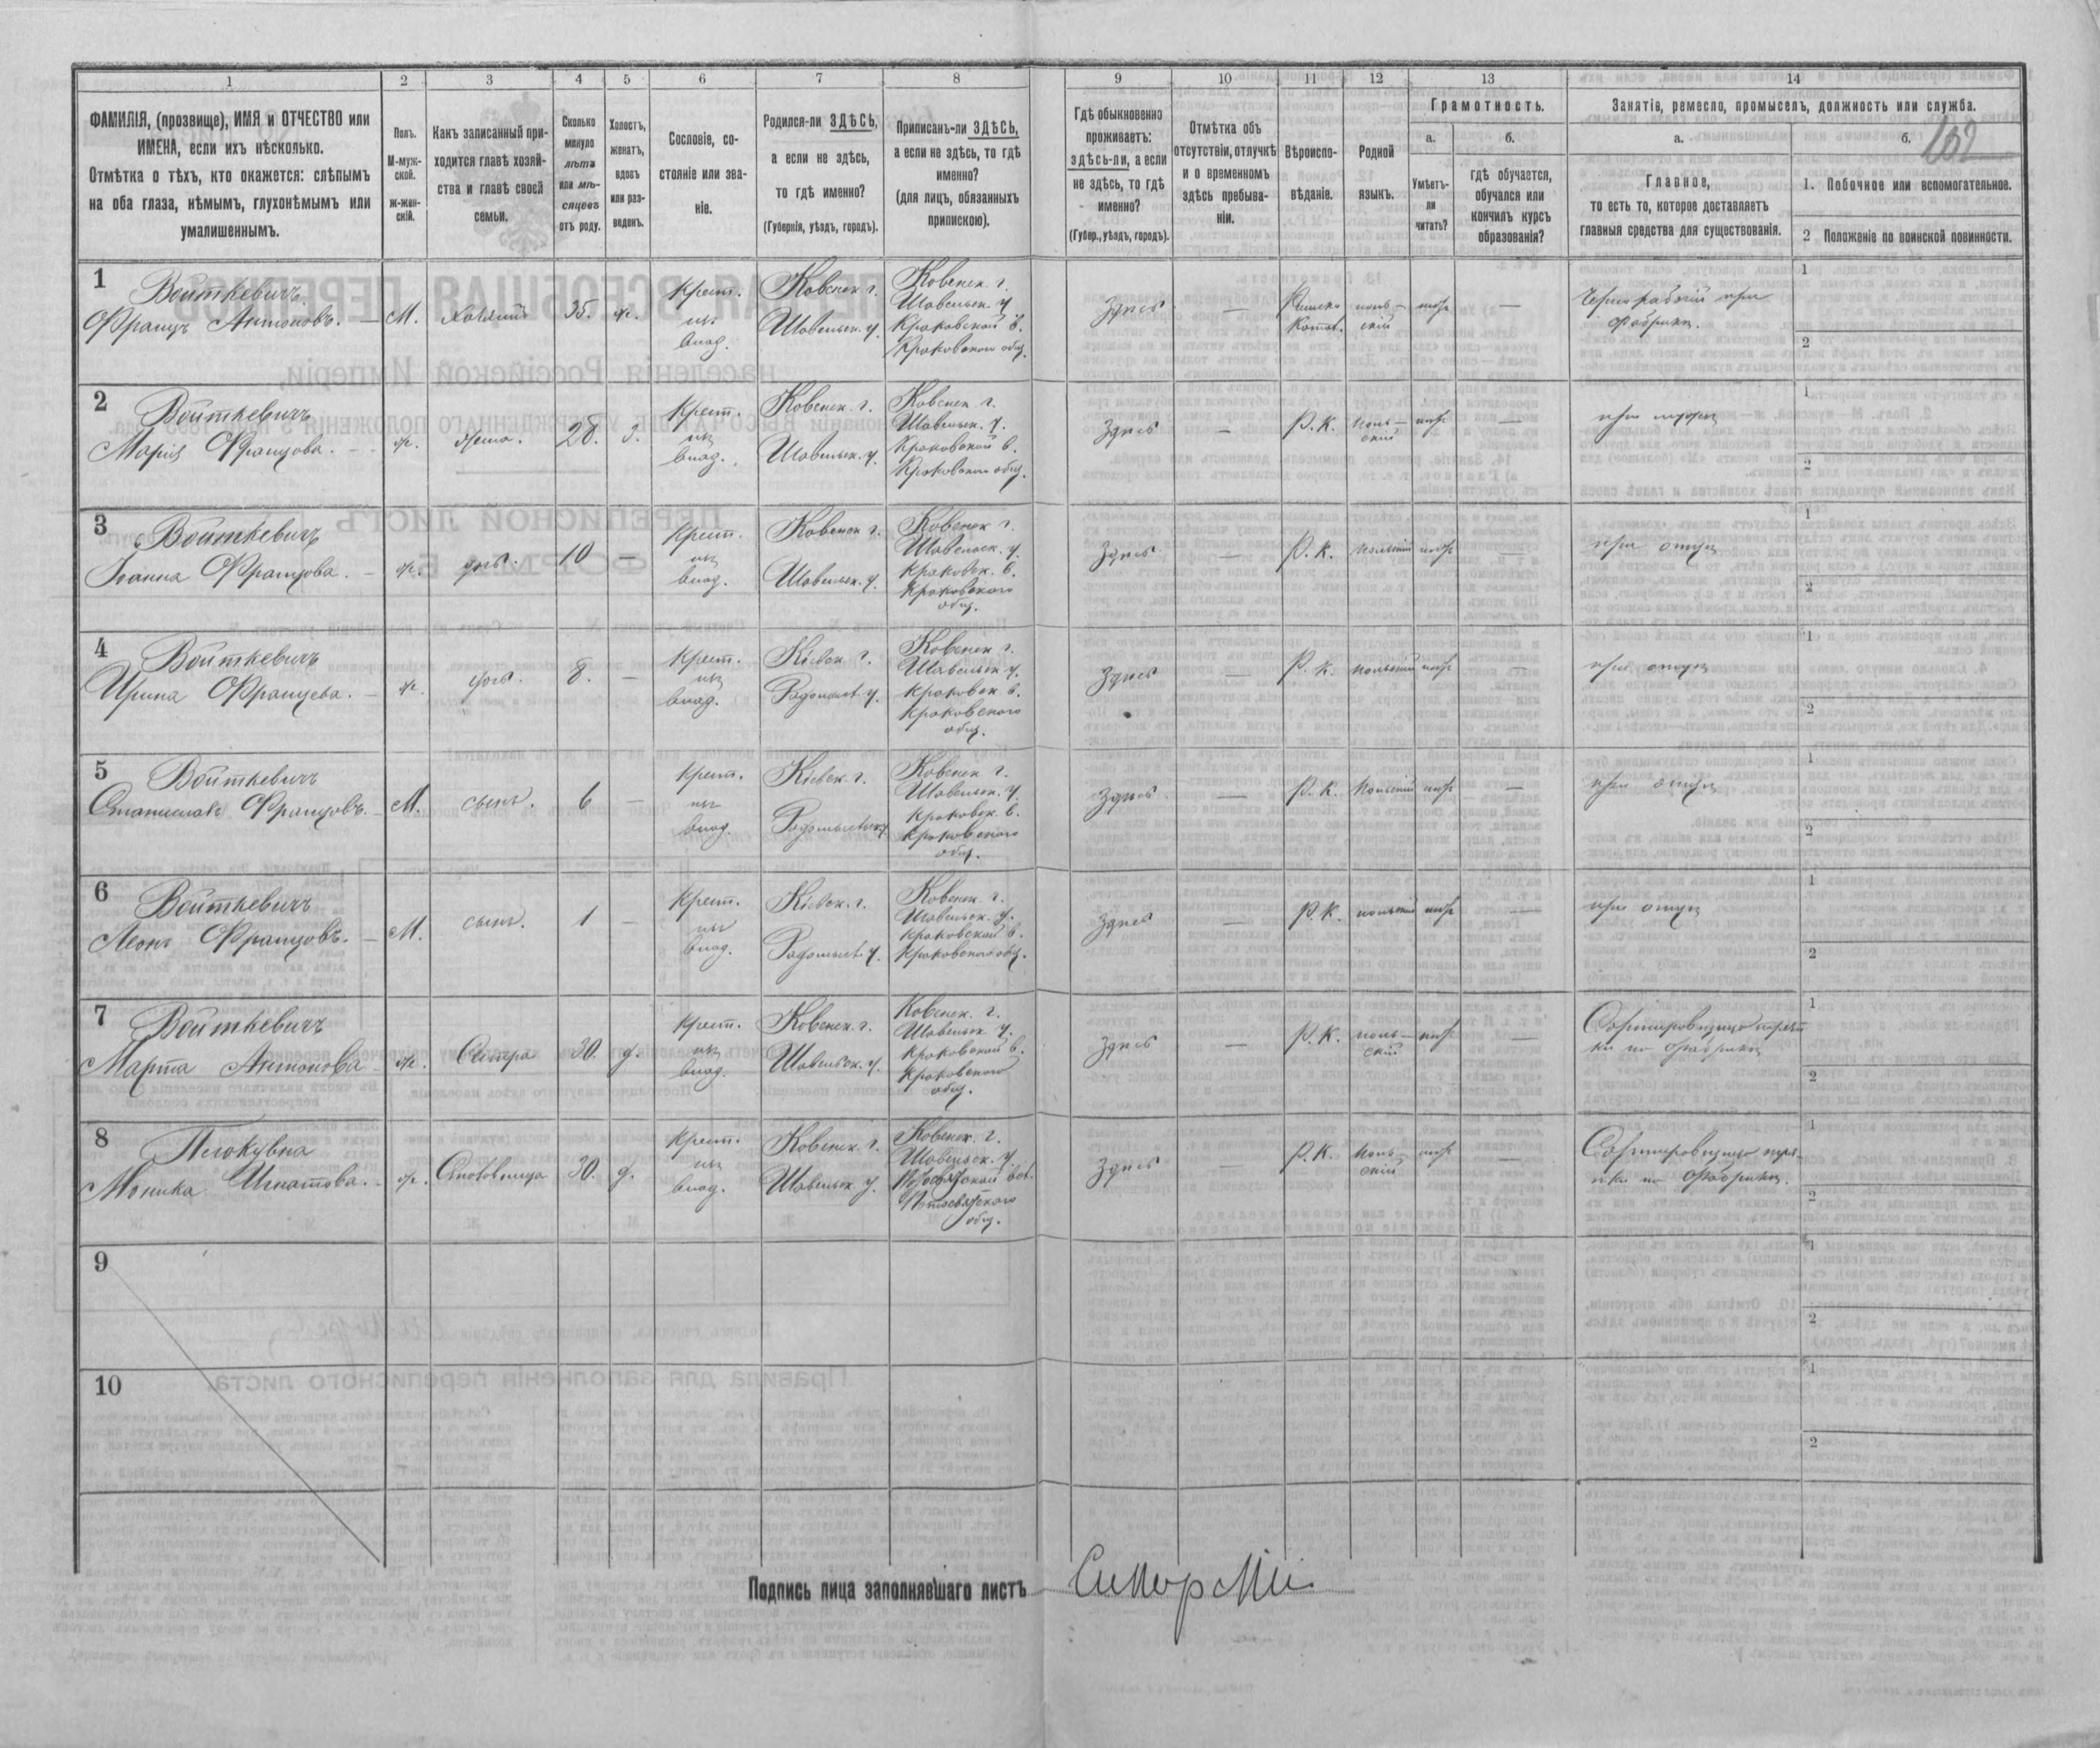 1 2 3 4 5 6 7 8 9 10 11 12 13 14
ФАМИЛІЯ, (прозвище), ИМЯ и ОТЧЕСТВО или
ИМЕНА, если ихъ нѣсколько.
Отмѣтка о тѣхъ, кто окажется: слѣпымъ
на оба глаза, нѣмымъ, глухонѣмымъ или
умалишеннымъ.
Полъ.
М-муж-
ской.
ж-жен-
скій.
Какъ записанный при-
ходится главѣ хозяй-
ства и главѣ своей
семьи.
Сколько
минуло
лѣтъ
или мѣ-
сяцевъ
отъ роду.
Холостъ,
женатъ,
вдовъ
или раз-
веденъ.
Сословіе, со-
стояніе или зва-
ніе.
Родился-ли ЗДѢСЬ,
а если не здѣсь,
то гдѣ именно?
(Губернія, уѣздъ, городъ).
Приписанъ-ли ЗДѢСЬ,
а если не здѣсь, то гдѣ
именно?
(для лицъ, обязанныхъ
припискою).
Гдѣ обыкновенно
проживаетъ:
здѣсь-ли, а если
не здѣсь, то гдѣ
именно?
(Губер., уѣздъ, городъ).
Отмѣтка объ
отсутствіи, отлучкѣ
и о временномъ
здѣсь пребыва-
ніи.
Вѣроиспо-
вѣданіе.
Родной
языкъ.
Грамотность.
а.
Умѣетъ-
ли
читать?
б.
гдѣ обучается,
обучался или
кончилъ курсъ
образованія?
Занятіе, ремесло, промыселъ, должность или служба.
а.
Главное,
то есть то, которое доставляетъ
главныя средства для существованія.
б.
1. Побочное или вспомогательное.
2 Положеніе по воинской повинности.
1
Войткевичъ
Францъ Антоновъ. — М. хозяинъ 35. ж.
Крест.
изъ
влад.
Ковенск г.
Шавельск. у.
Ковенск. г.
Шавельск. у
Кроковской в.
Кроковскаго общ.
Здѣсь —
Римско
Катол.
поль-
скій
—
Чернорабочій при
фабрикѣ.
1
2
2
Войткевичъ
Марія Францова. — ж. жена. 28. з.
Крест.
изъ
влад.
Ковенск. г.
Шавельск. у.
Ковенск. г.
Шавельск. у.
Кроковской в.
Кроковскаго общ.
Здѣсь — Р. К.
поль-
скій
—
при мужѣ
1
2
3
Войткевичъ
Іоанна Францова. — ж. дочь. 10 —
Крест.
изъ
влад.
Ковенск г.
Шавельск. у.
Ковенск г.
Шавельск. у.
Кроковск. в.
Кроковскаго
общ.
Здѣсь — Р. К. польскій —
при отцѣ
1
2
4
Войткевичъ
Ирина Францева. — ж. дочь. 8. —
Крест.
изъ
влад.
Кіевск г.
Радомысл у.
Ковенск г.
Шавельск у.
Кроковск в.
Кроковскаго
общ.
Здѣсь — Р. К. польскій —
при отцѣ
1
2
5
Войткевичъ
Станиславъ Францовъ. М. сынъ. 6 —
Крест.
изъ
влад.
Кіевск. г.
Ковенск г.
Шавельск. у.
Кроковск. в.
Кроковскаго
общ.
Здѣсь — Р. К. Польскій —
при отцѣ
1
2
6
Войткевичъ
Леонъ Францовъ. — М. сынъ. 1 —
Крест.
изъ
влад.
Кіевск. г.
Радомысл. у.
Ковенск. г.
Шавельск. у.
Кроковской в.
Кроковскаго общ.
Здѣсь — Р. К. польскій —
при отцѣ
1
2
7
Войткевичъ
Марта Антонова ж. Сестра 30. д.
Крест.
изъ
влад.
Ковенск. г.
Шавельск. у.
Ковенск. г.
Шавельск. у.
Кроковской в.
Кроковскаго
общ.
Здѣсь — Р. К.
поль-
скій
—
на фабрикѣ
1
2
8
Моника Игнатова. ж. 30. д.
Крест.
изъ
влад.
Ковенск. г.
Шавельск. у.
Ковенск. г.
Шавельск. у
общ.
Здѣсь — Р. К.
поль-
скій
—
на фабрикѣ.
1
2
9
1
2
10
1
2
Подпись лица заполнявшаго листъ Сикорскій